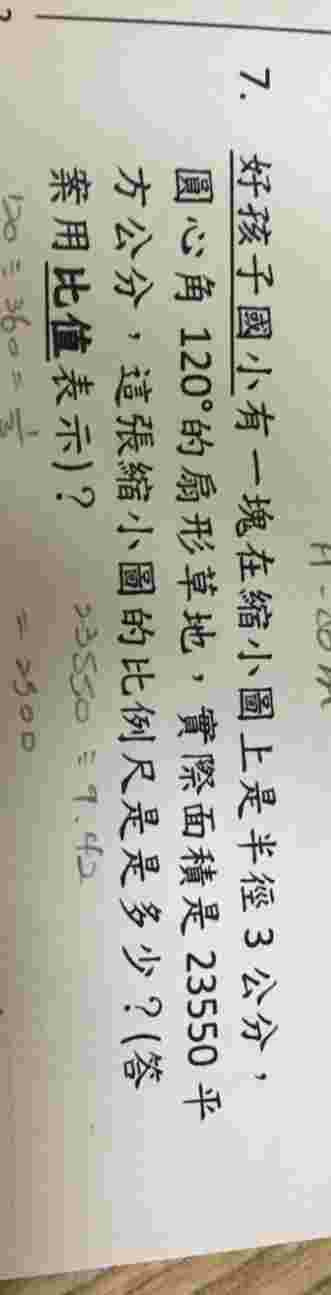 7. 好孩子國小有一塊在縮小圖上是半徑 3 公分，
圓心角 120°的扇形草地，實際面積是 23550 平
方公分，這張縮小圖的比例尺是是多少？(答
案用比值表示)？
23550 ÷ 9.42
= 2500
120 ÷ 360 = 1/3